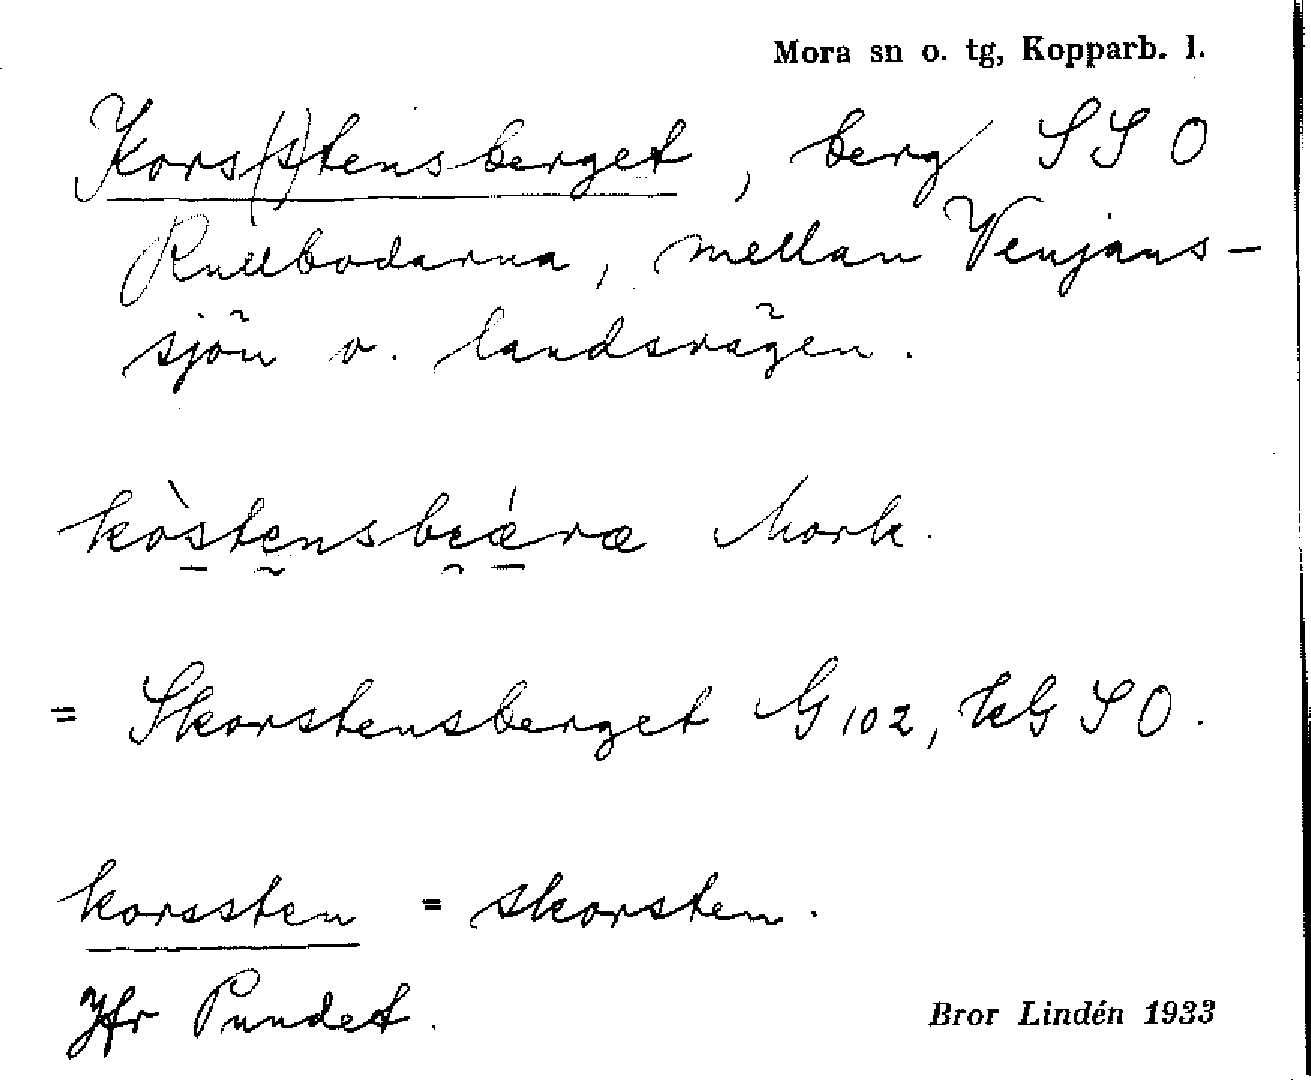 Mora sn o. tg, Kopparb. l.
Kors(s)tensberget, berg SSO
Rullbodarna, mellan Venjans-
sjön o. landsvägen.
kòstensbiáræ Mork.
= Skorstensberget G 102, KG SO.
korssten = skorsten.
Jfr Pundet.
Bror Lindén 1933